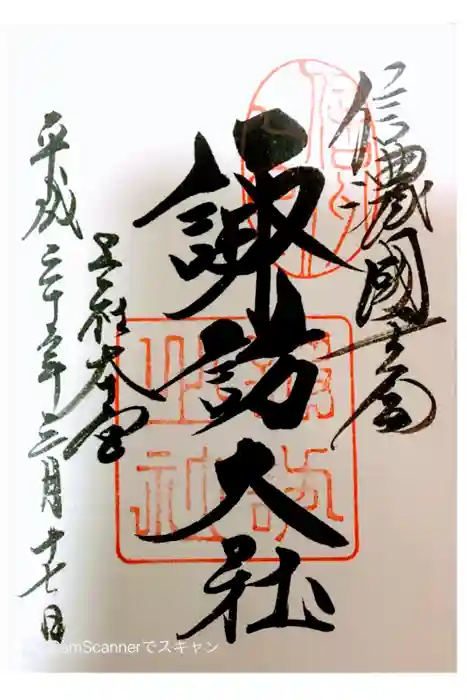 信濃國一之宮
諏訪大社
上社本宮
平成三十年三月十七日
amScannerでスキャン